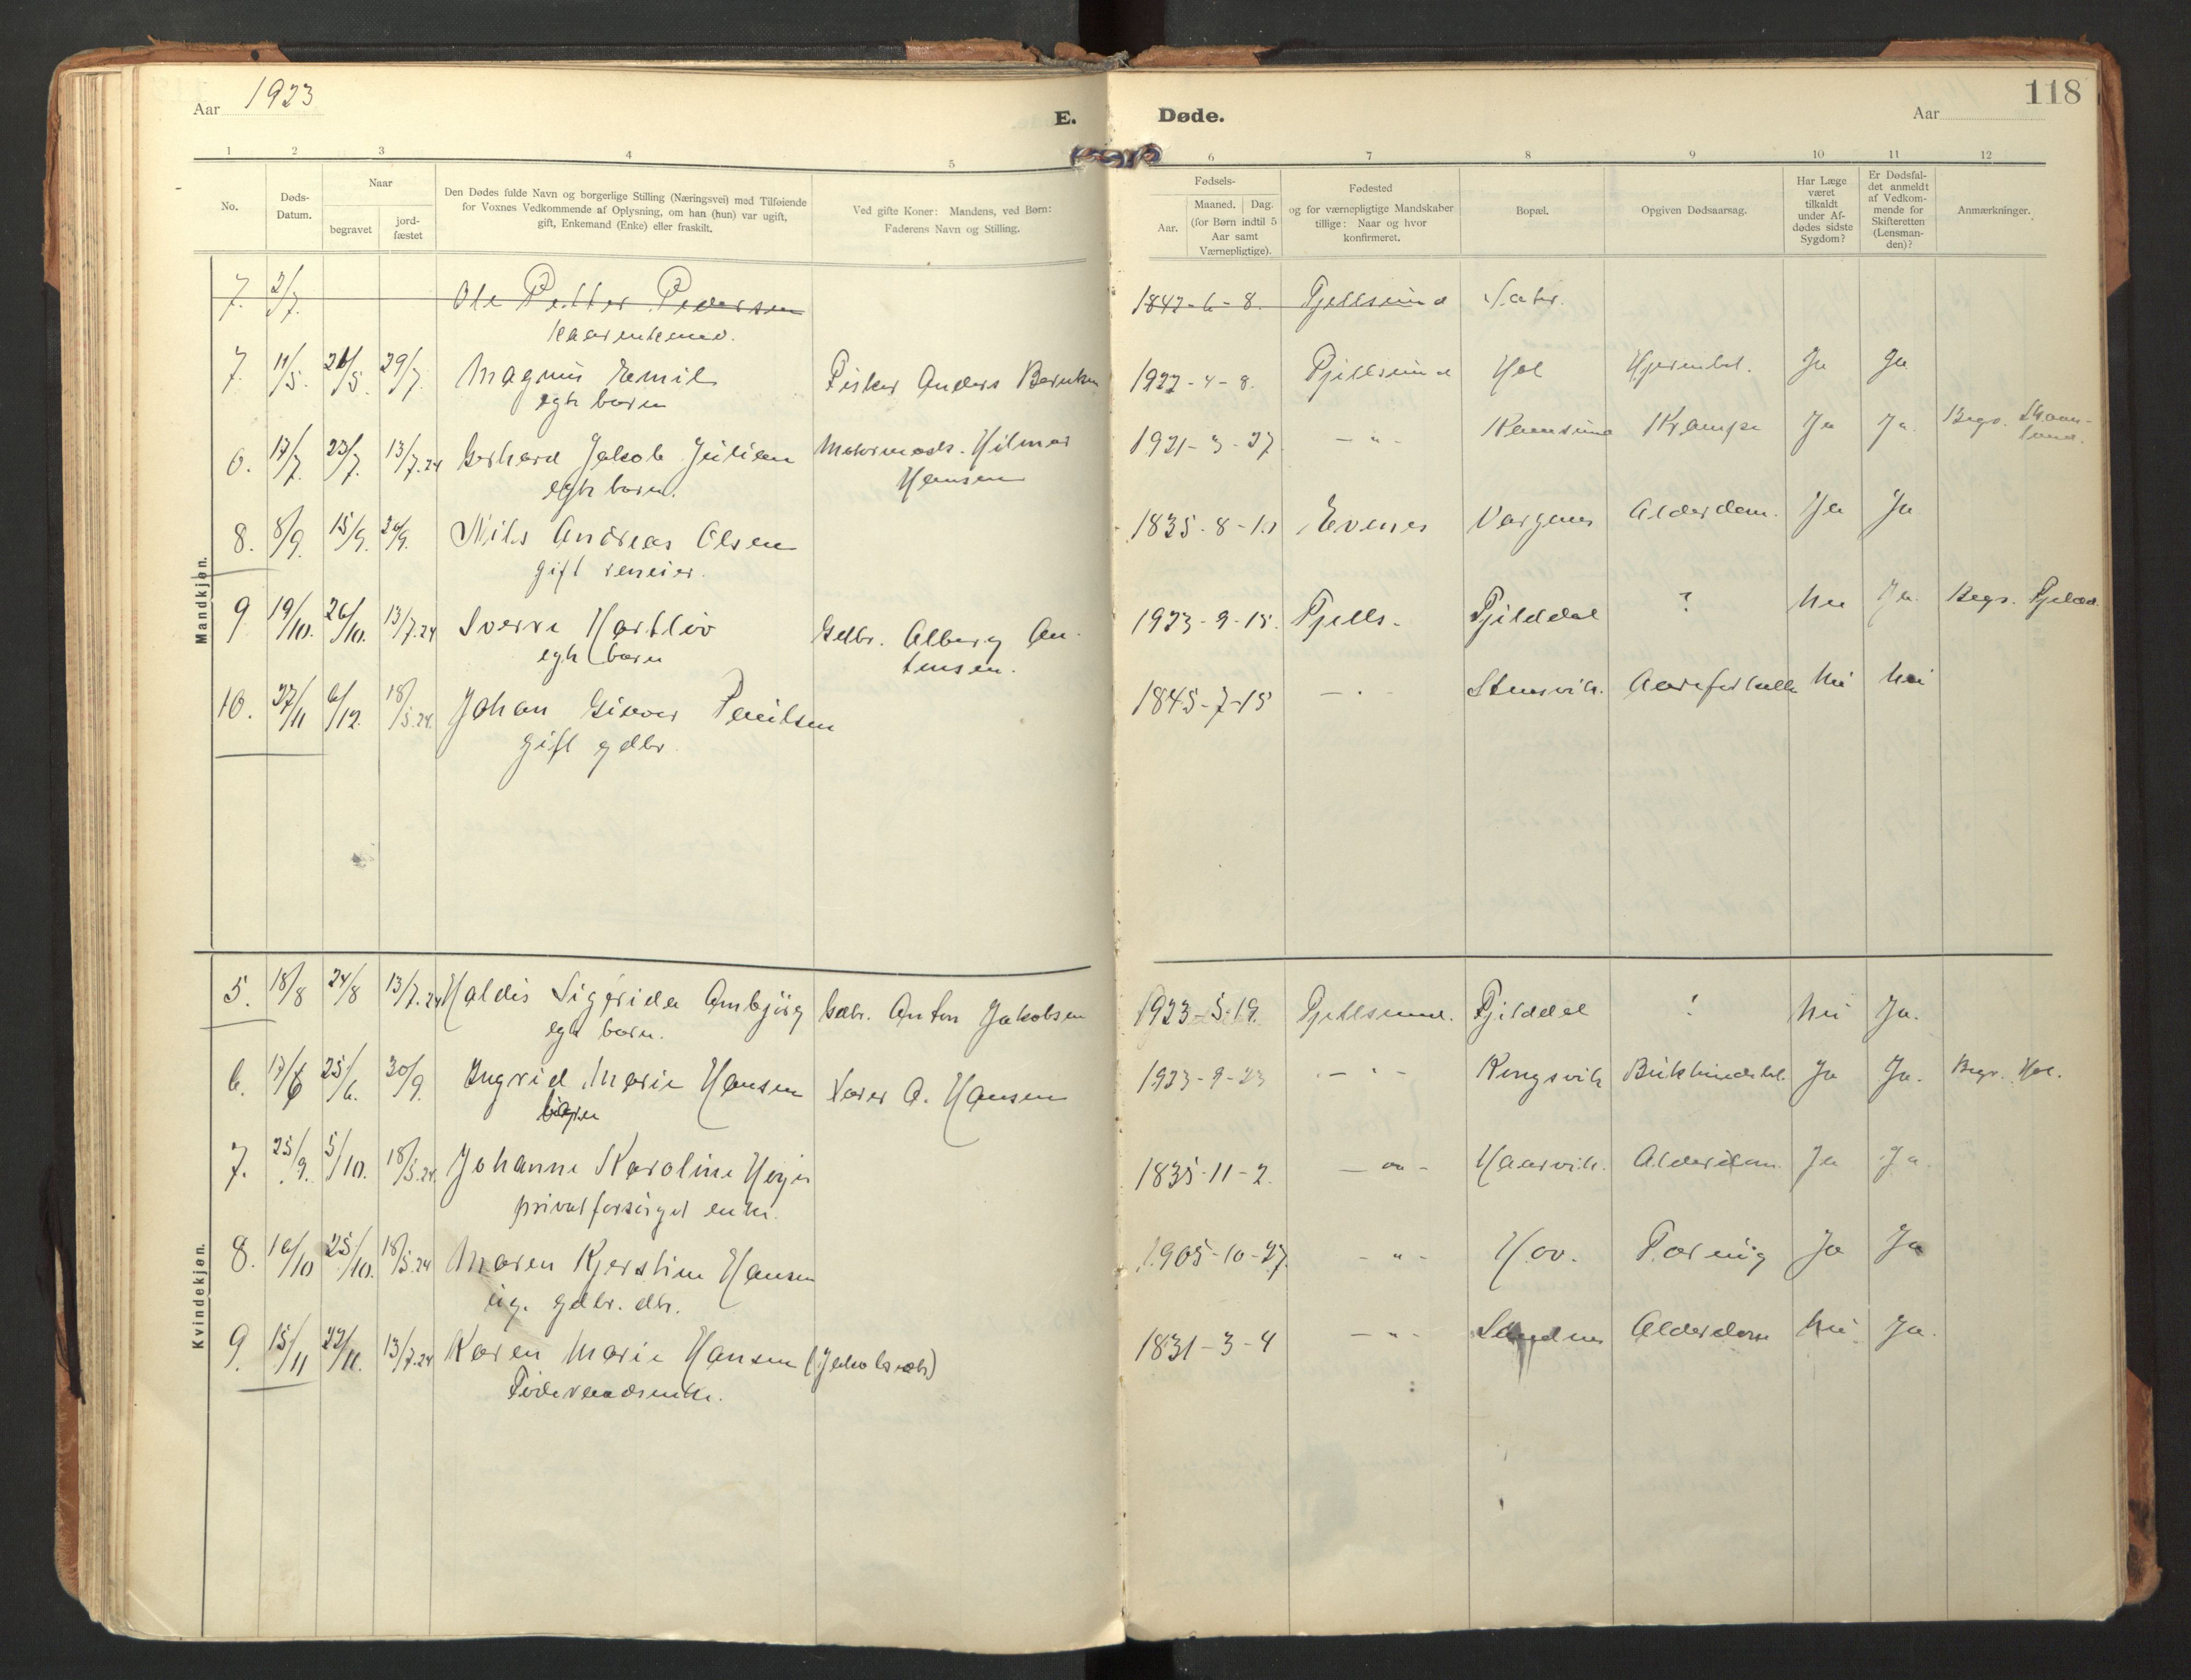 Aar 1923
E. Døde.
Aar
118
1 2 3 4 5 6 7 8 9 10 11 12
No.
Døds-
Datum.
Naar
begravet
jord-
fæstet
Den Dødes fulde Navn og borgerlige Stilling (Næringsvei) med Tilføiende
for Voxnes Vedkommende af Oplysning, om han (hun) var ugift,
gift, Enkemand (Enke) eller fraskilt.
Ved gifte Koner: Mandens, ved Børn:
Faderens Navn og Stilling.
Fødsels-
Aar.
Maaned. Dag.
(for Børn indtil 5
Aar samt
Værnepligtige).
Fødested
og for værnepligtige Mandskaber
tillige: Naar og hvor
konfirmeret.
Bopæl.
Opgiven Dødsaarsag.
Har Læge
været
tilkaldt
under Af-
dødes sidste
Sygdom?
Er Dødsfal-
det anmeldt
af Vedkom-
mende for
Skifteretten
(Lensman-
den)?
Anmærkninger.
Mandkjøn.
7. 2/7. Ole Petter Pedersen 1842-6-8. Fjellsund
7. 11/5. 21/5. 29/7. Magnus Emil Fisker Anders Berntsen 1922-4-8. Fjellsund Hol Hjernebet. Ja Ja
egte barn
6. 17/7. 23/7. 13/7.24 Gerhard Jakob Julian Hilmar 1921-3-27. -"- Ramsund Krampe Ja Ja Begr. Skaan-
egte barn. Hansen land.
8. 8/9. 15/9. 26/9. Nils Andreas Olsen 1835-8-10 Evenes Alderdom. Ja Ja
gift reneier.
9 19/10. 26/10. 13/7.24 Sverre Hartliv Gdbr. An- 1923-9-15. Fjells- Fjelddal ? Nei Ja Begr.
egte barn tonsen.
10. 27/11 6/12. 18/5.24. Johan Giæver Paulsen 1845-7-15 -"- Stensvik. Aareforkalk Nei Nei
gift gdbr.
Kvindekjøn.
5. 18/8 24/8 13/7.24 Haldis Sigfrida Gdbr. Anton Jakobsen 1923-5-19. Fjellsund. Fjelddal ? Nei Ja.
egte barn.
6. 17/6 25/6. 30/9. Ingrid Marie Hansen A. Hansen 1923-9-23 -"- Kongsvik Ja Ja. Begr. Hol.
7. 25/9. 5/10. 18/5.24. Johanne Karoline 1835-11-2. -"- Haarvik. Alderdom. Ja Ja.
privatforsørget enke.
8. 16/10 25/10. 18/5.24 Maren Kjerstine Hansen 1905-10-27. -"- Hov. Tæring Ja Ja
ug. gdbr. dtr.
9. 15/11 22/11. 13/7.24 Karen Marie Hansen (Jakobsdtr) 1831-3-4 -"- Sandnes Alderdom Nei Ja.